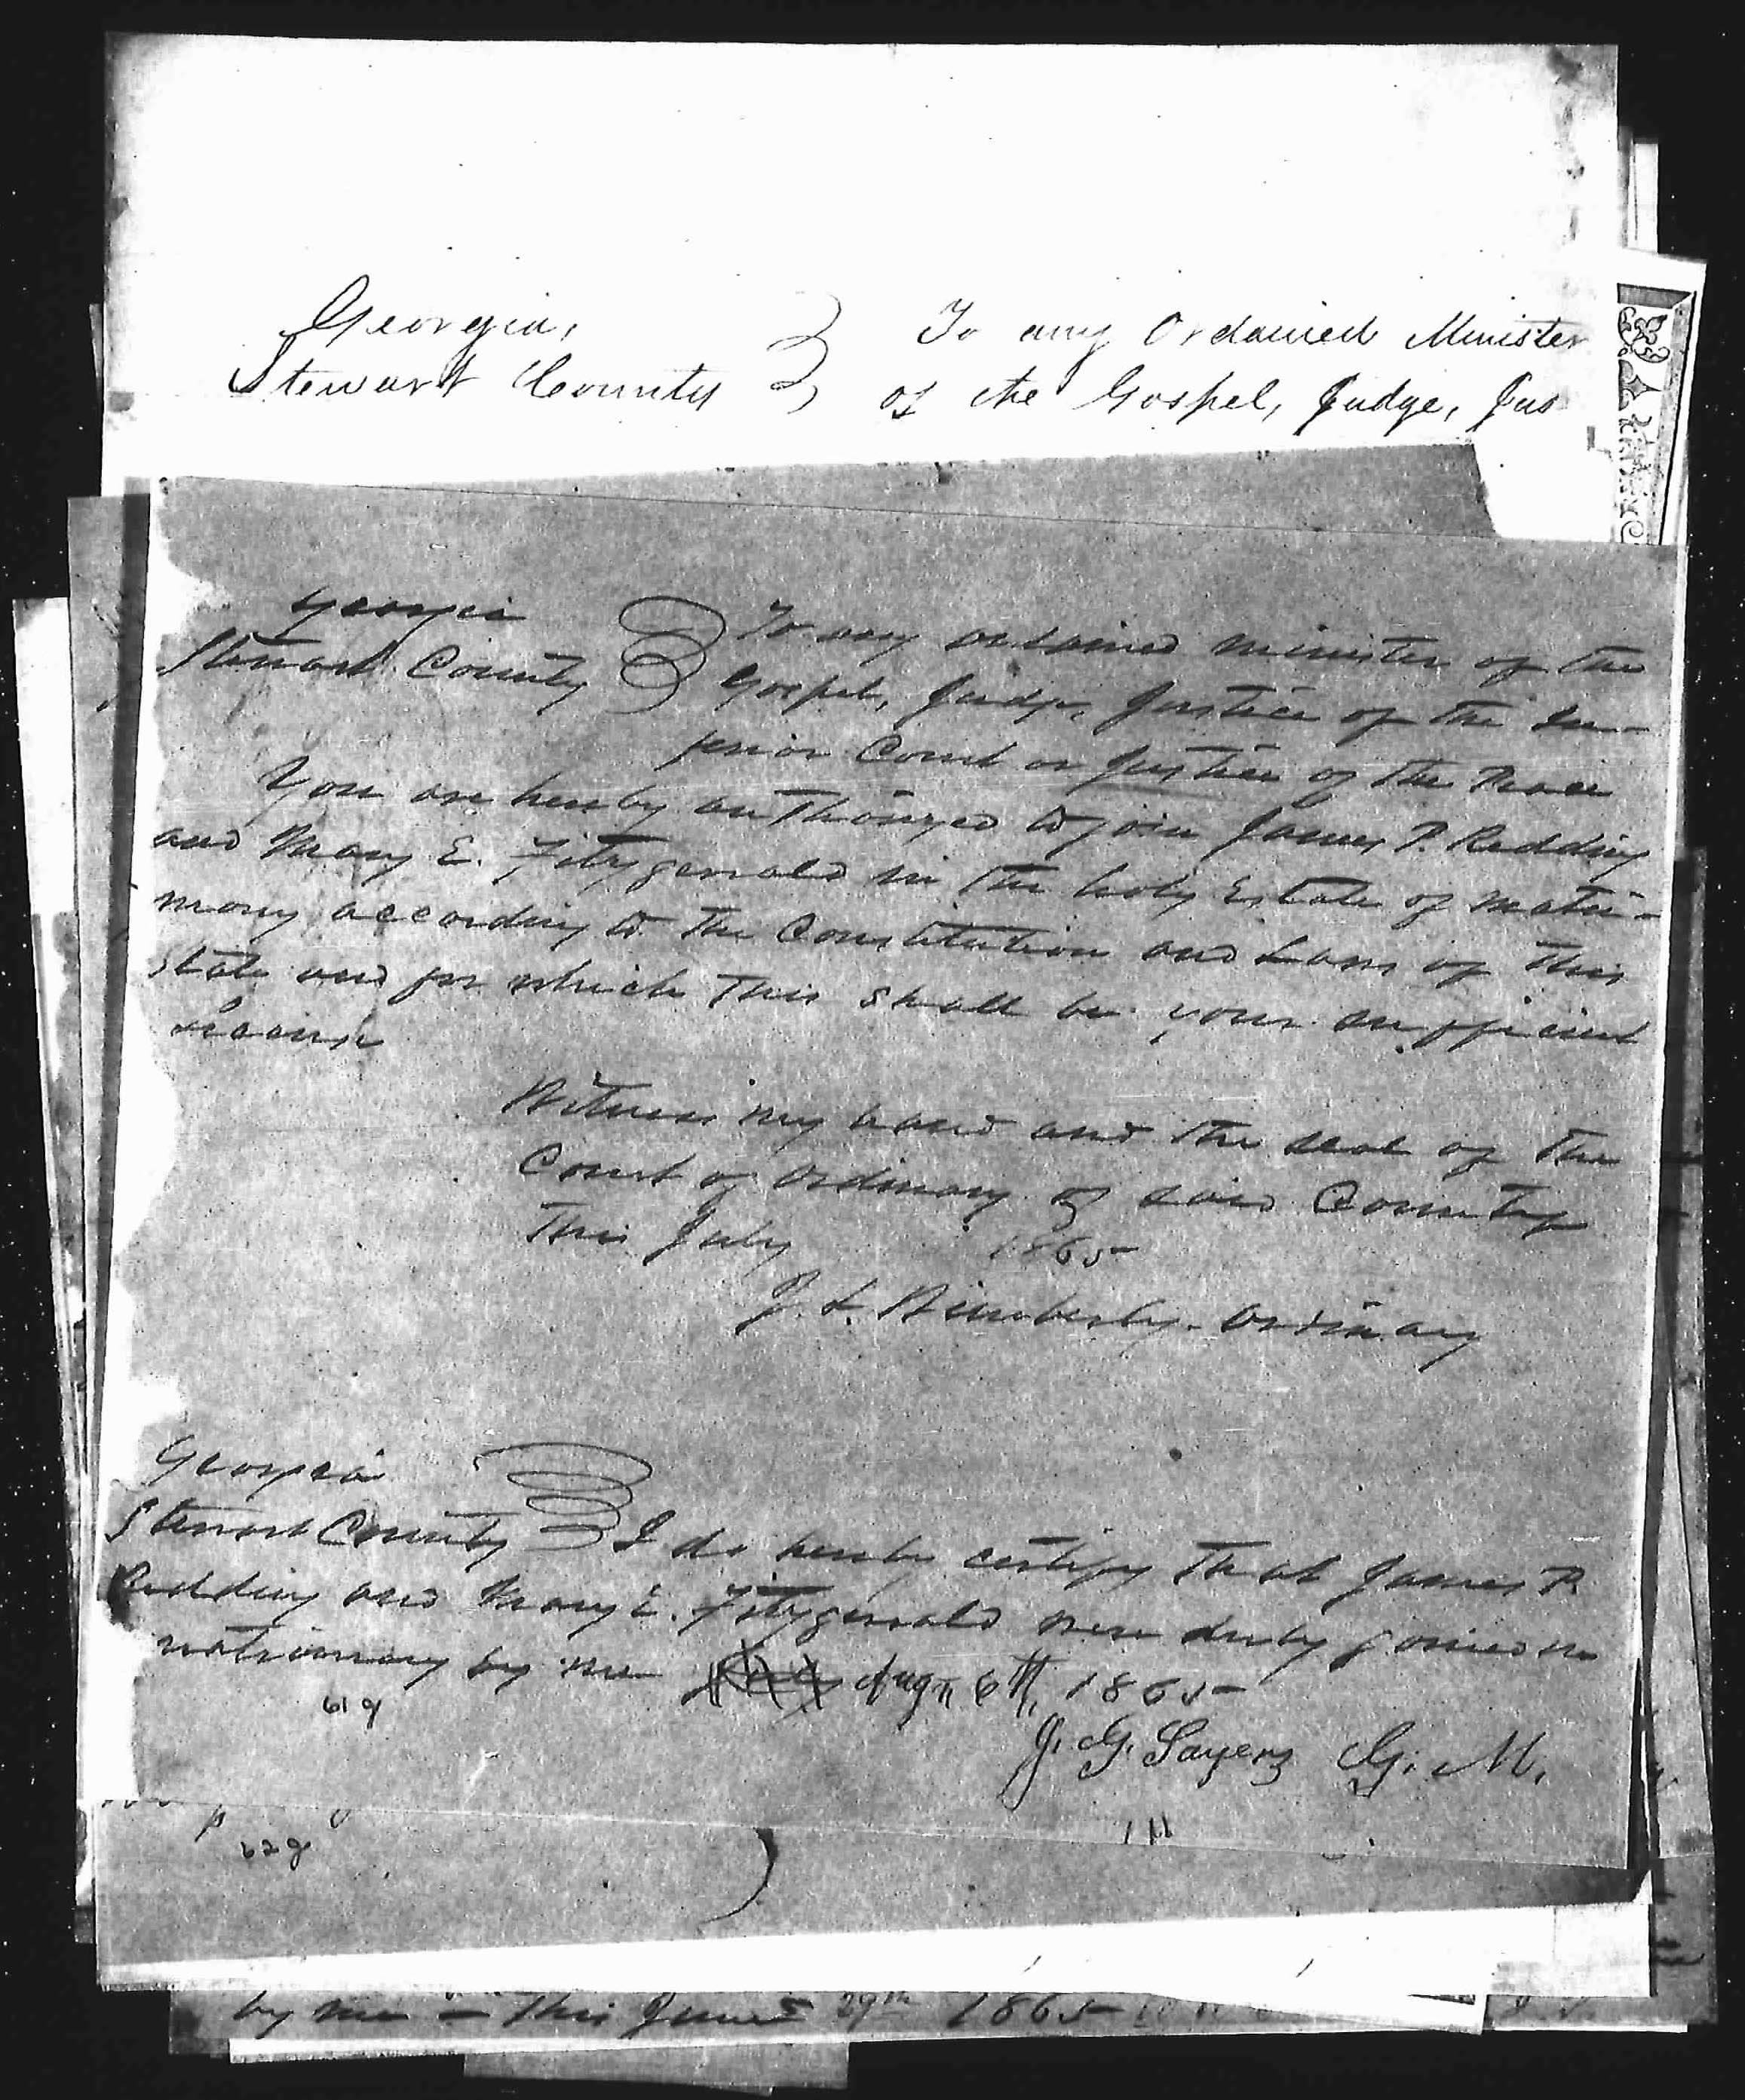 Georgia,
Stewart County
To any Ordained Minister
of the Gospel, Judge, Jus
Georgia
Stewart County
To any ordained minister of the
Gospel, Judge, Justice of the In-
ferior Court or Justice of the Peace
You are hereby authorized to join James P. Redding
and Mary E. Fitzgerrald in the holy Estate of matri-
mony according to the Constitution and Laws of this
State and for which this shall be your sufficient
License
Witness my hand and the seal of the
Court of Ordinary of said County
This July 1865
J. L. Wimberly. Ordinary
Georgia
Stewart County I do hereby certify that James P.
Redding and Mary E. Fitzgerrald were duly joined in
matrimony by me Aug 6th, 1865
619
J. G. Sayers G. M.
629
by me - This June 29th 1865